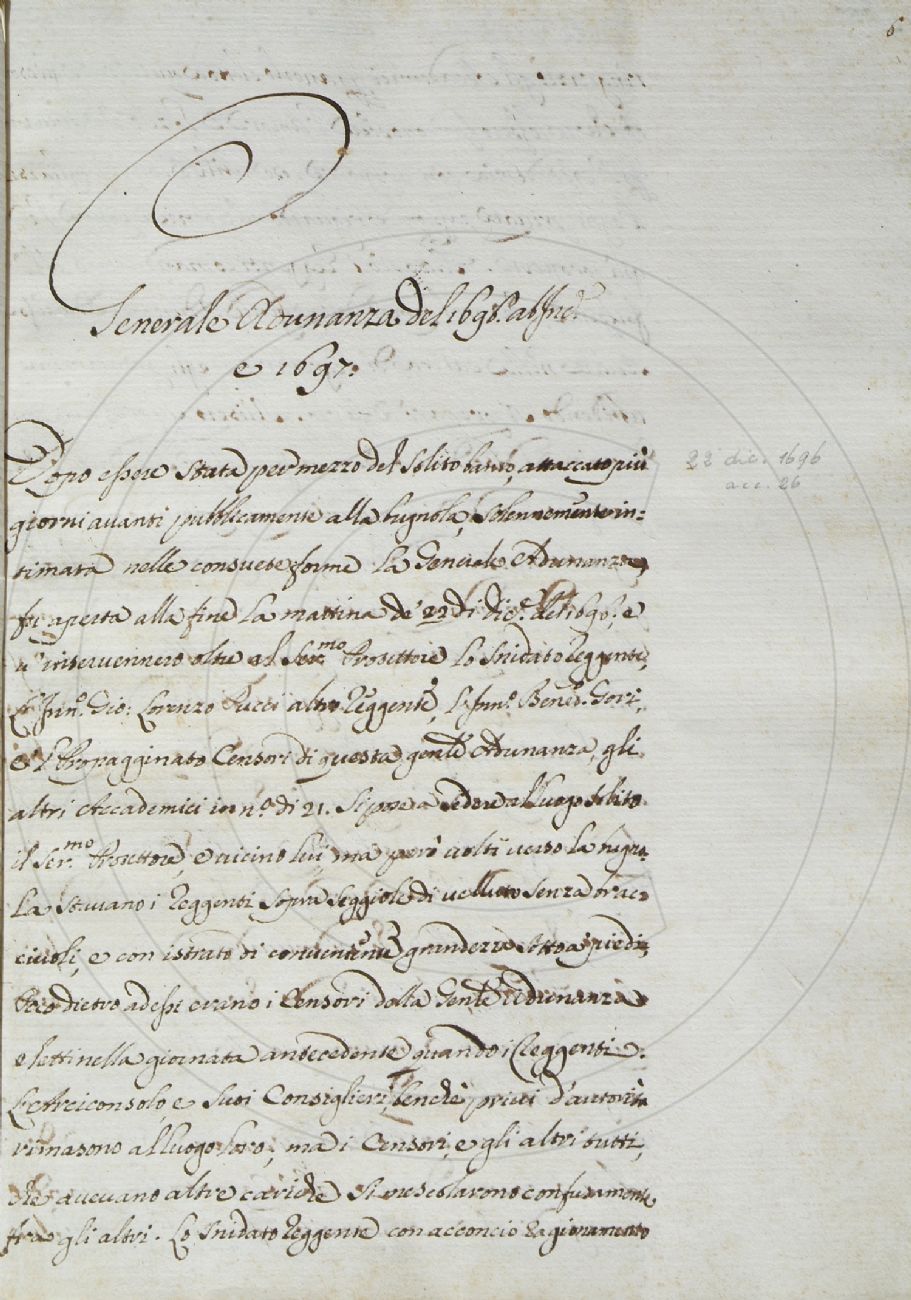 6
Generale Adunanza del 1696. ab Inc.
e 1697.
Dopo essere stata per mezzo del solito attaccato più
giorni avanti pubblicamente alla Pugnola, solennemente in=
timata nelle consuete forme la Generale Adunanza,
fu aperta alla fine la mattina de' 22 di Dic.e del 1696, e
v'intervennero oltre al Ser.mo Protettore lo Snidato Reggente,
L'Inn.o Gio: Lorenzo Pucci altro Reggente, L'Inn.o Bened. Gori,
e l'Propagginato Censori di questa gen.le Adunanza, gli
altri Accademici in n.o di 21. Si pose a sedere al luogo solito
il Ser.mo Protettore, e vicino lui ma però volti verso la
la stavano i Reggenti sopra seggiole di velluto senza brac=
ciuoli, e con istrato di conveniente grandezza sotto a' piedi,
Poco dietro ad essi erano i Censori della Gen.le Adunanza
eletti nella giornata antecedente quando i Reggenti.
L'Arciconsolo, e suoi Consiglieri, benchè privi d'autorità
rimasono al luogo loro, ma i Censori, e gli altri tutti,
che avevano altre cariche si mescolarono confusamente
fra gli altri. Lo Snidato Reggente con acconcio ragionamento
22 dic. 1696
acc. 26